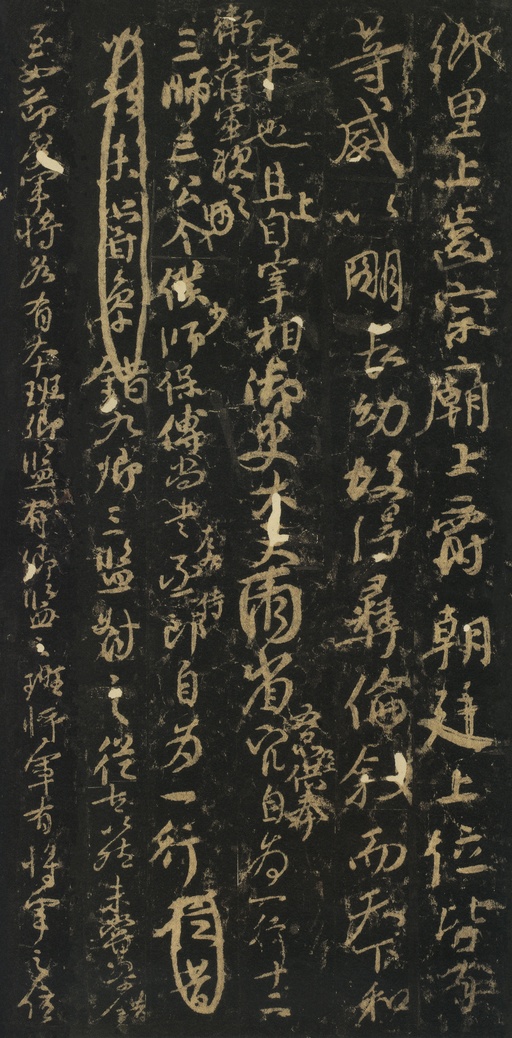 鄉里上齒宗廟上爵朝廷上位皆有
等威以明長幼故得彝倫敘而天下和
平也且上自宰相御史大夫兩省五品以上供奉官自為一行十二
衛大將軍次之
三師三公令僕少師保傅尚書左右丞侍郎自為一行
九卿三監對之從古以然未嘗參錯
至如節度軍將各有本班卿監有卿監之班將軍有將軍之位